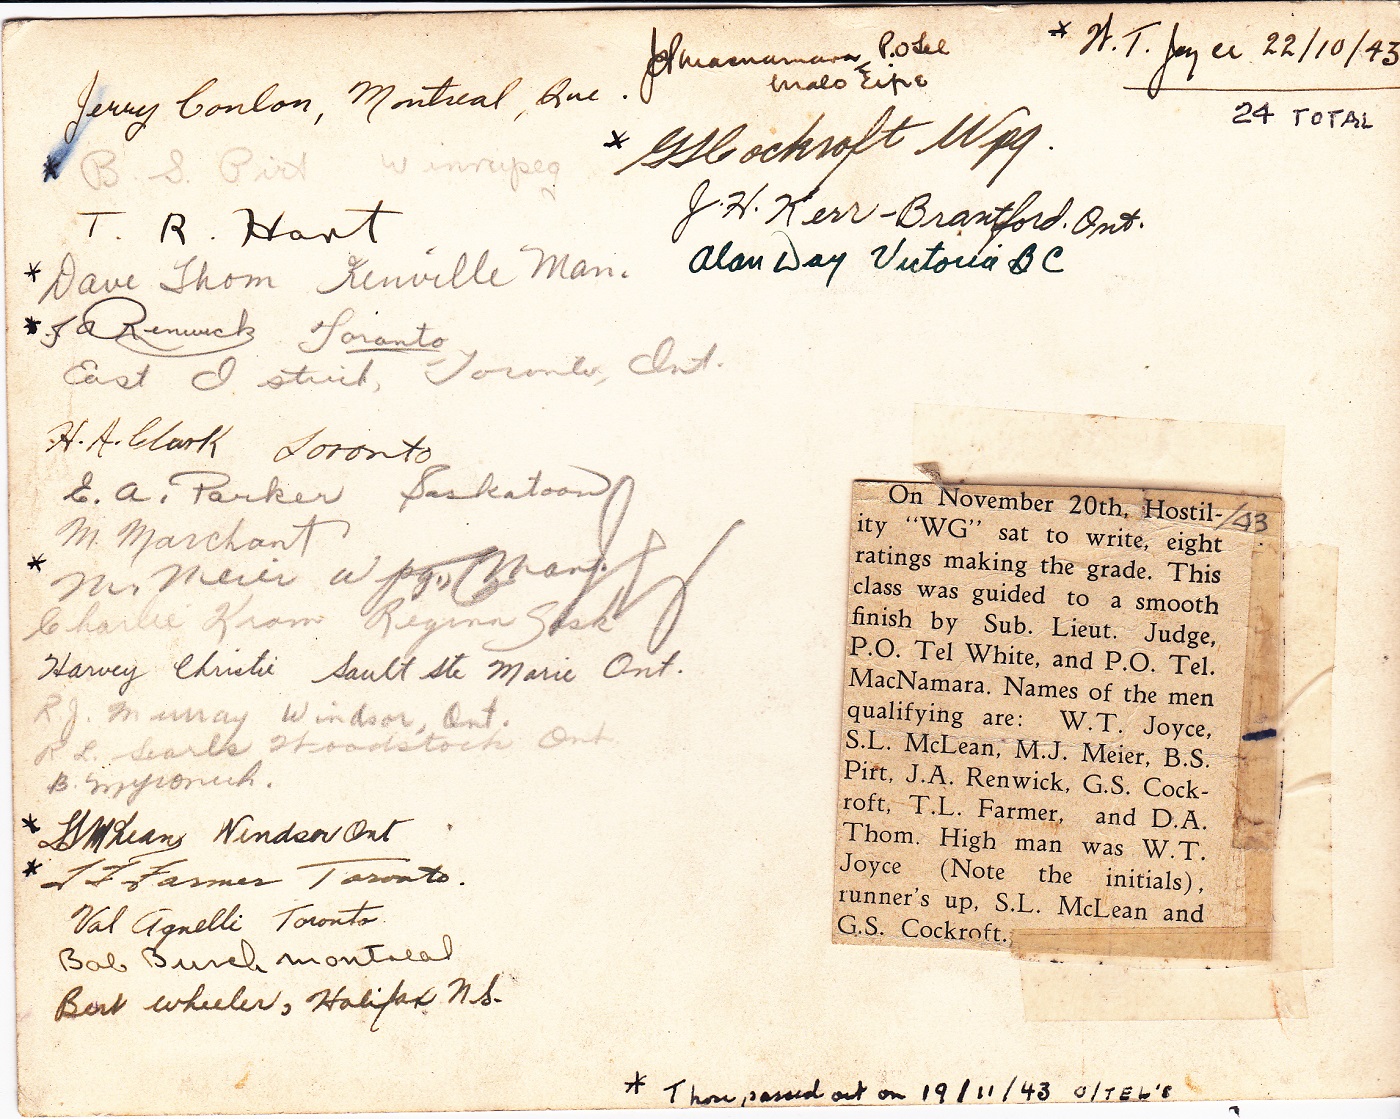 Jerry Conlon, Montreal, Que.
* B. S. Pirt Winnipeg
T. R. Hart
* Dave Thom Kenville Man.
* J A Renwick Toronto
East Toronto, Ont.
H. A. Clark Toronto
E. A. Parker Saskatoon
M. Marchant
* M. Meier Wpg., Man.
Charlie Kram Regina Sask
Harvey Christie Sault Ste Marie Ont.
R. J. Murray Windsor, Ont.
R L. Searls Woodstock Ont
B. Myronich.
* S L McLean Windsor Ont
* T L Farmer Toronto.
Val Agnelli Toronto
Bob Burch montreal
Bert wheeler, Halifax N.S.
P.O Tel
Eire
* G S Cockroft Wpg.
J. H. Kerr - Brantford. Ont.
Alan Day Victoria B C
* W. T. Joyce 22/10/43
24 TOTAL
On November 20th, Hostil- /43
ity "WG" sat to write, eight
ratings making the grade. This
class was guided to a smooth
finish by Sub. Lieut. Judge,
P.O. Tel White, and P.O. Tel.
MacNamara. Names of the men
qualifying are: W.T. Joyce,
S.L. McLean, M.J. Meier, B.S.
Pirt, J.A. Renwick, G.S. Cock-
roft, T.L. Farmer, and D.A.
Thom. High man was W.T.
Joyce (Note the initials),
runner's up, S.L. McLean and
G.S. Cockroft.
* Those passed out on 19/11/43 O/TEL'S